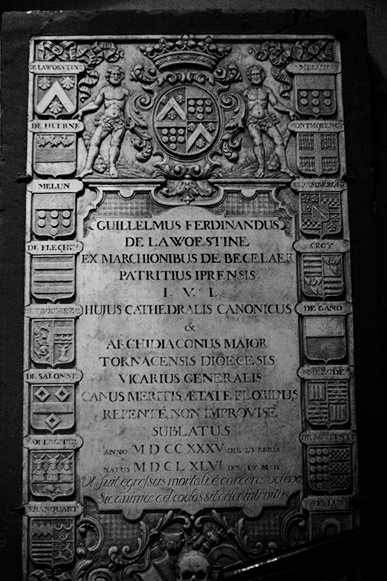 DE LAWOESTINE
MELUN
DE HUERNE
MONTMORENCY
MELUN
DE FLECHIN
CROY
DE GAND
DE SALONNE
GUILLELMUS FERDINANDUS
DE LAWOESTINE
EX MARCHIONIBUS DE BECELAER
PATRITIUS IPRENSIS
I. V. L
HUJUS CATHEDRALIS CANONICUS
&
ARCHIDIACONUS MAJOR
TORNACENSIS DIOECESIS
VICARIUS GENERALIS
CANUS MERITIS, ÆTATE FLORIDUS
REPENTÉ, NON IMPROVISÉ
SUBLATUS
ANNO MDCCXXXV DIE 23
NATUS MDCLXLVI DIE IX MAII
Ut fuit egressus mortali é carcere velox
Sic animæ ad cœlos sit celer introitus